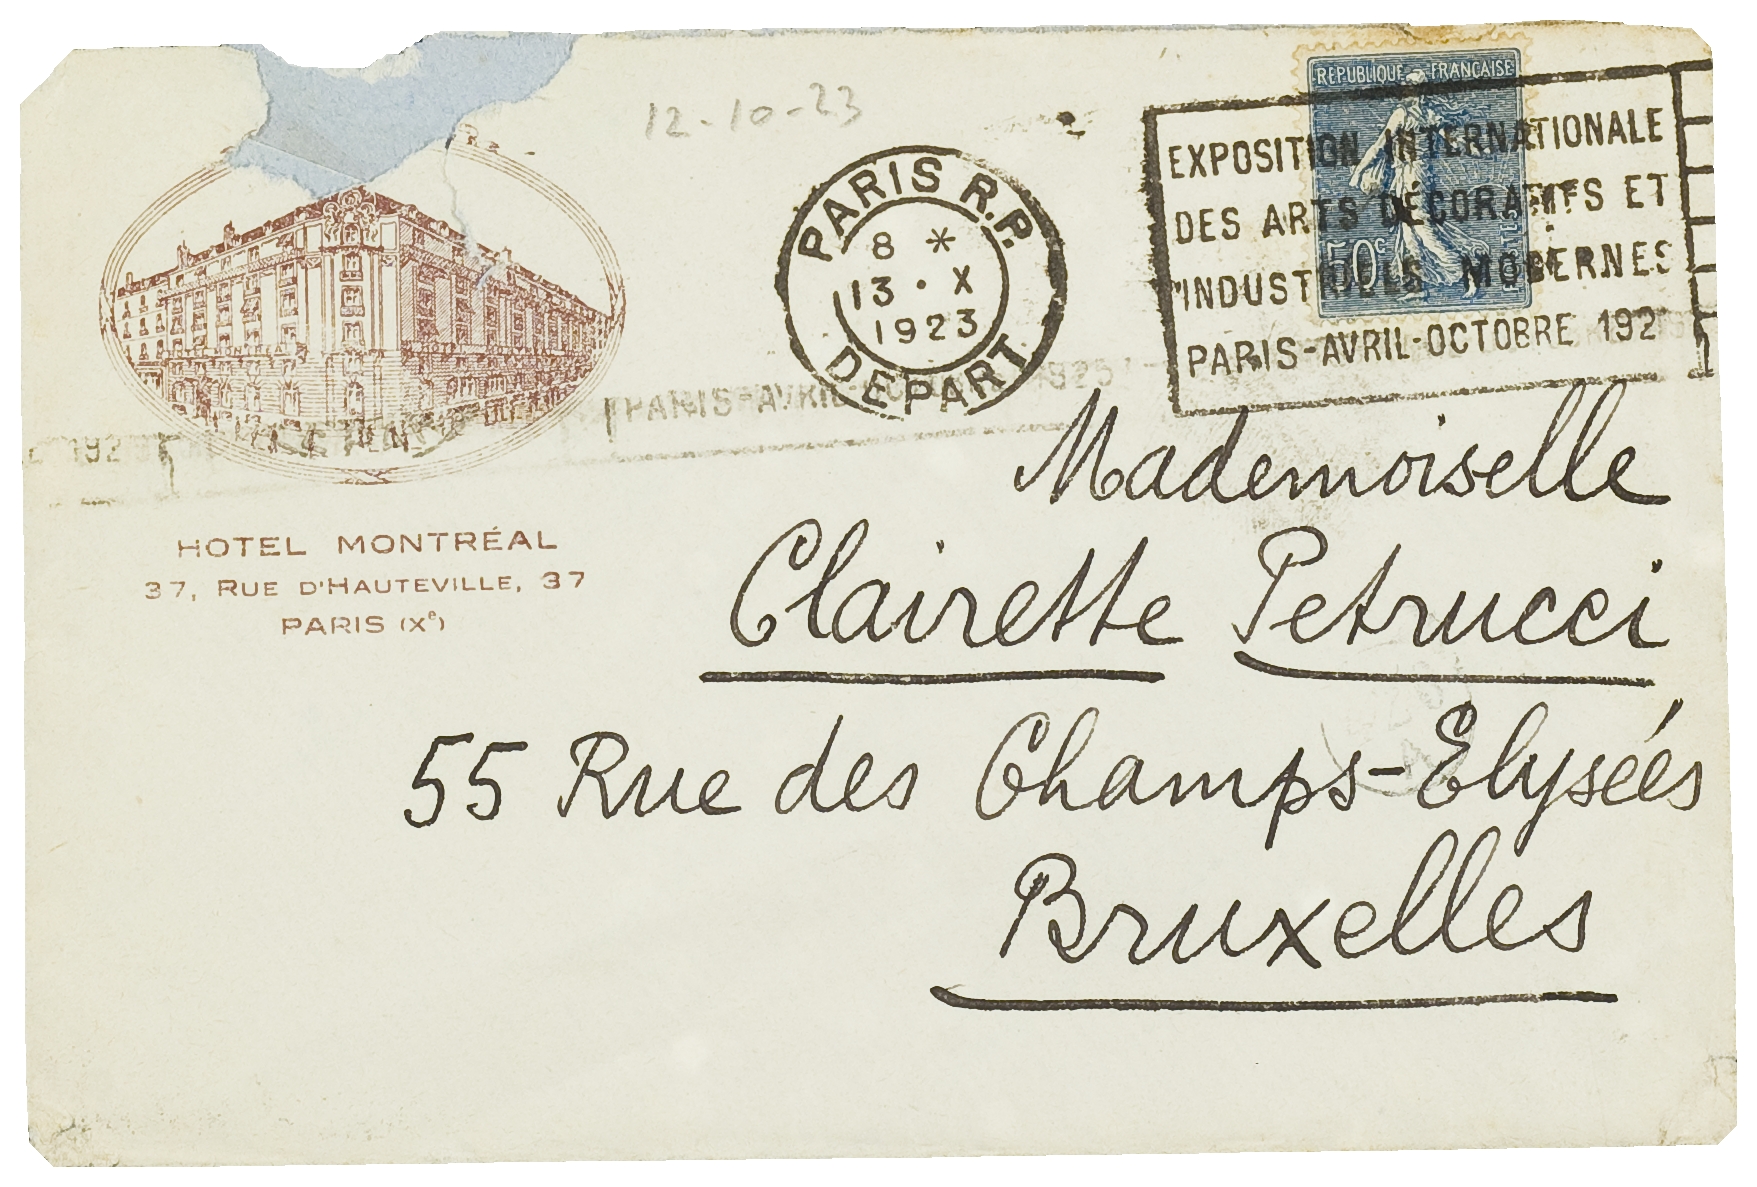 12-10-23
PARIS R.P.
8 *
13 · X
1923
DEPART
RÉPUBLIQUE FRANÇAISE
50c
EXPOSITION INTERNATIONALE
DES ARTS DÉCORATIFS ET
INDUSTRIELS MODERNES
PARIS-AVRIL-OCTOBRE 192
PARIS-AVRIL 1925
192
HOTEL MONTRÉAL
37, RUE D'HAUTEVILLE, 37
PARIS (Xe)
Mademoiselle
Clairette Petrucci
55 Rue des Champs-Elysées
Bruxelles